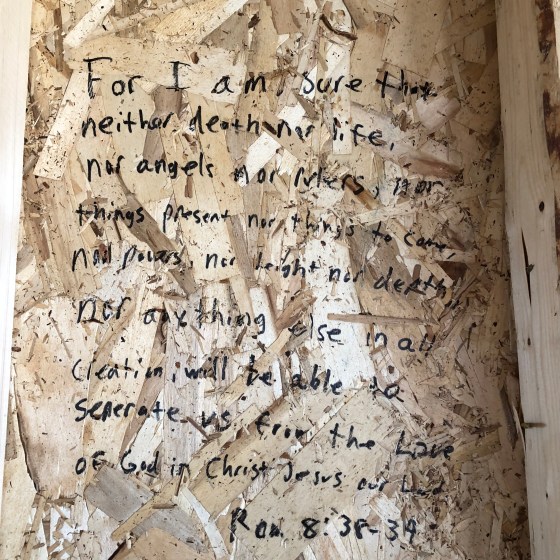 For I am sure that
neither death nor life,
nor angels nor rulers, nor
things present nor things to come,
nor powers, nor height nor death,
nor anything else in all
creation, will be able to
seperate us from the Love
of God in Christ Jesus our Lord
Rom 8:38-39